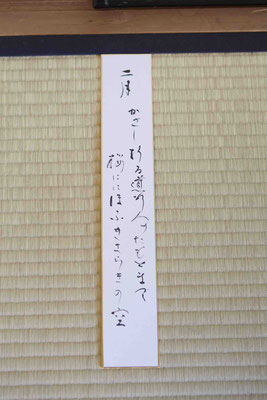 二月
かざし折る道行人のたもとまで
桜ににほふきさらぎの空